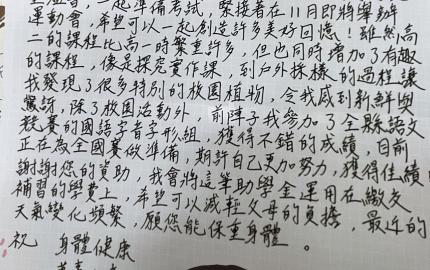 一起準備考試,緊接著在11月即將舉辦
運動會,希望可以一起創造許多美好回憶!雖然高
二的課程比高一時繁重許多,但也同時增加了有趣
的課程,像是探究實作課,到戶外採樣的過程讓
我發現了很多特別的校園植物,令我感到新鮮與
驚訝,除了校園活動外,前陣子我參加了全縣語文
競賽的國語字音字形組,獲得不錯的成績,目前
正在為全國賽做準備,期許自己更加努力,獲得佳績
謝謝您的資助,我會將這筆助學金運用在繳交
補習的學費上,希望可以減輕父母的負擔,最近的
天氣變化頻繁,願您能保重身體。
祝 身體健康